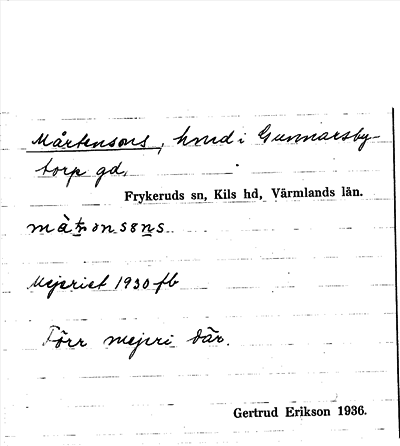 Mårtensons, hmd i Gunnarsby-
torp gd,
Frykeruds sn, Kils hd, Värmlands län.
Mejeriet 1930 fb
Förr mejeri där.
Gertrud Erikson 1936.